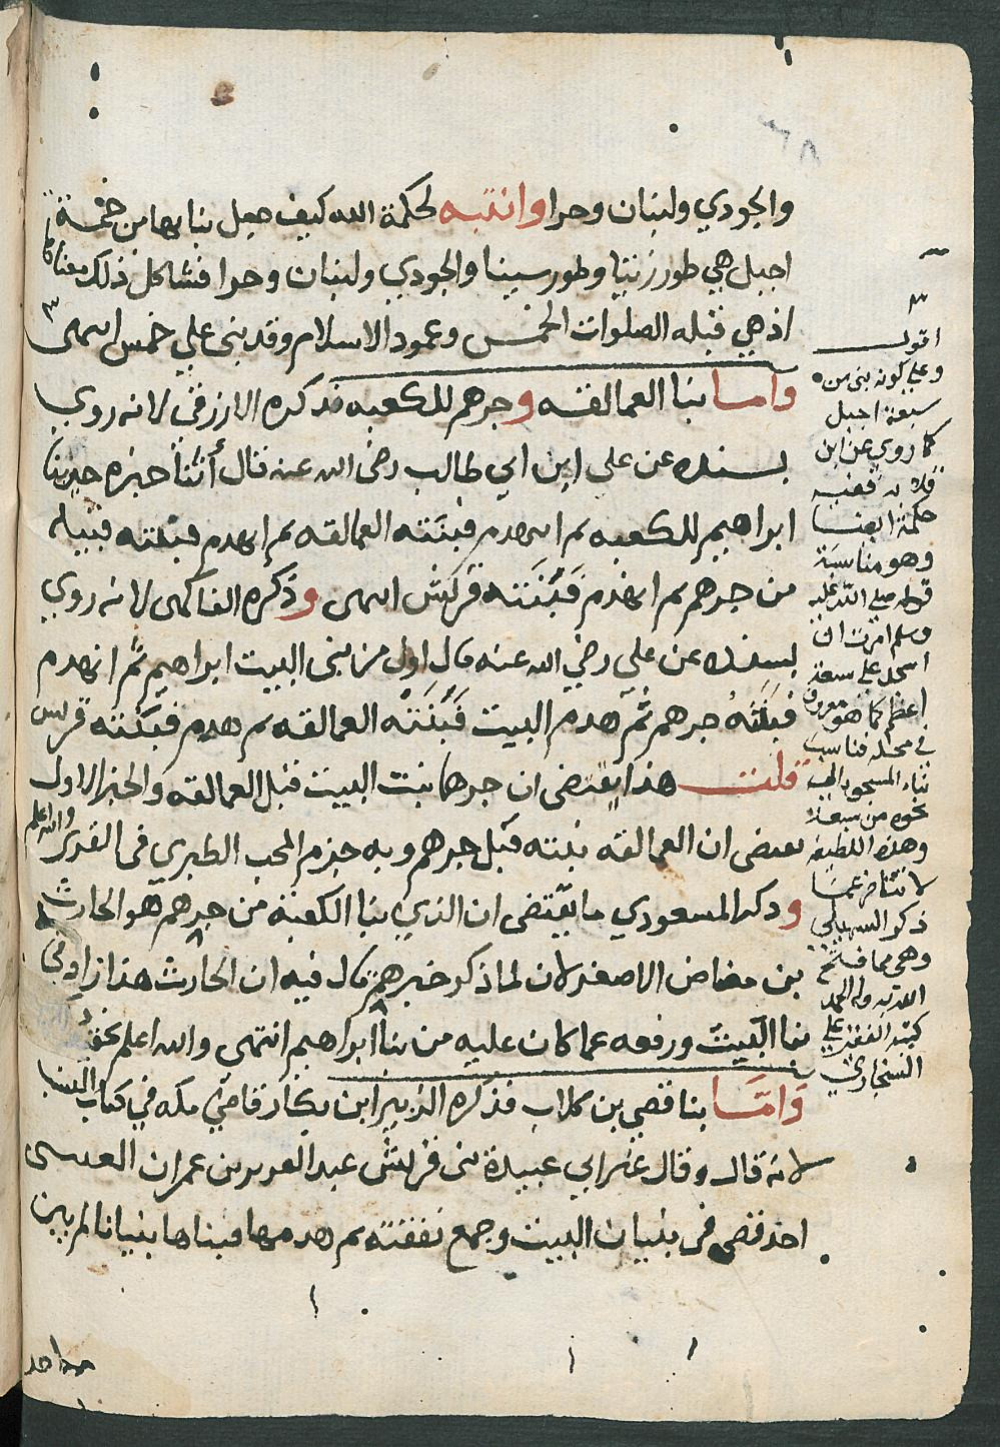 والجودي ولبنان وحرا وانتبه لحكمة الله كيف جعل بناها من خمسة
اجبل هي طور زيتا وطور سينا والجودي ولبنان وحرا فشاكل ذلك معناها
اذ هي قبله الصلوات الخمس وعمود الاسلام وقد بني علي خمس انتهى
واما بنا العمالقه وجرهم للكعبه فذكره الازرقى لانه روي
بسنده عن علي ابن ابي طالب رضى الله عنه قال خبره حين بنا
ابراهيم للكعبه ثم انهدم فبنته العمالقه ثم انهدم فبنته قبيله
من جرهم ثم انهدم فبنته قريش انتهى وذكره الفاكهى لانه روي
بسنده عن علي رضي الله عنه قال اول من بنى البيت ابراهيم ثم انهدم
فبنته جرهم ثم هدم البيت فبنته العمالقه ثم هدم فبنته قريش
قلت هذا يقتضى ان جرهما بنت البيت قبل العمالقه والخبر الاول
يقتضى ان العمالقه بنته قبل جرهم وبه جزم المحب الطبري في القرى والله اعلم
وذكر المسعودي ما يقتضى ان الذي بنا الكعبة من جرهم هو الحارث
بن مضاض الاصغر لان لما ذكر خبر جرهم قال فيه ان الحارث هذا زاد في
بنا البيت ورفعه عما كان عليه من بنا ابراهيم انتهى والله اعلم بحقه
واما بنا قصي بن كلاب فذكره الزبير ابن بكار قاضي مكه في كتاب النسب
لانه قال وقال غير ابي عبيدة من قريش عبد العزيز بن عمران
اخذ قصي في بنيان البيت وجمع نفقته ثم هدمها فبناها بنيانا لم يبن
اقول
وعلي كونه بني من
سبعة اجبل
كما روي عن ابن
ففيه
حكمة ايضا
وهو مناسبة
قوله صلي الله عليه
وسلم امرت ان
اسجد على سبعة
اعظم كما هو معروف
في محله فناسب
بناء المسجود الى
نحوه من سبعة
وهذه اللطيفة
لا تتناقض عما
ذكر السهيلي
وهي مما فتح
الله به وله الحمد
كتبه الفقير علي
السنجاري